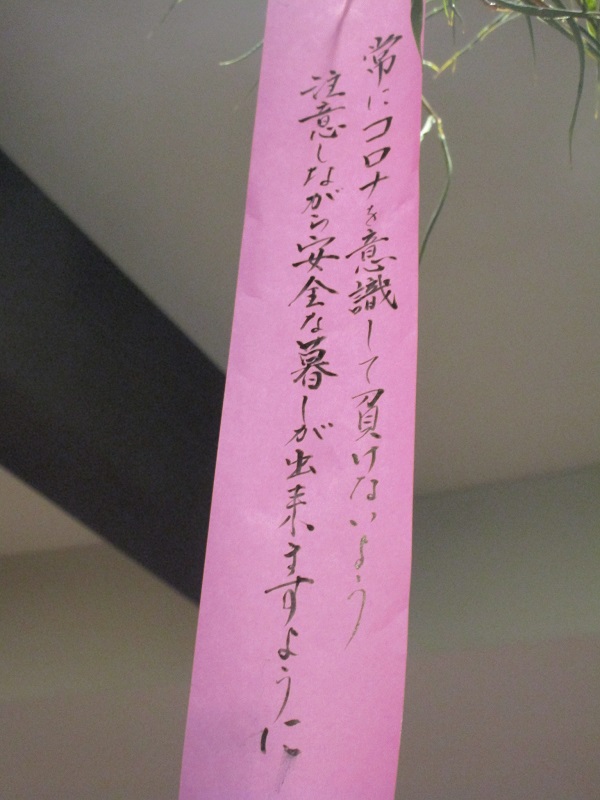 常にコロナを意識して負けないよう
注意しながら安全な暮しが出来ますように